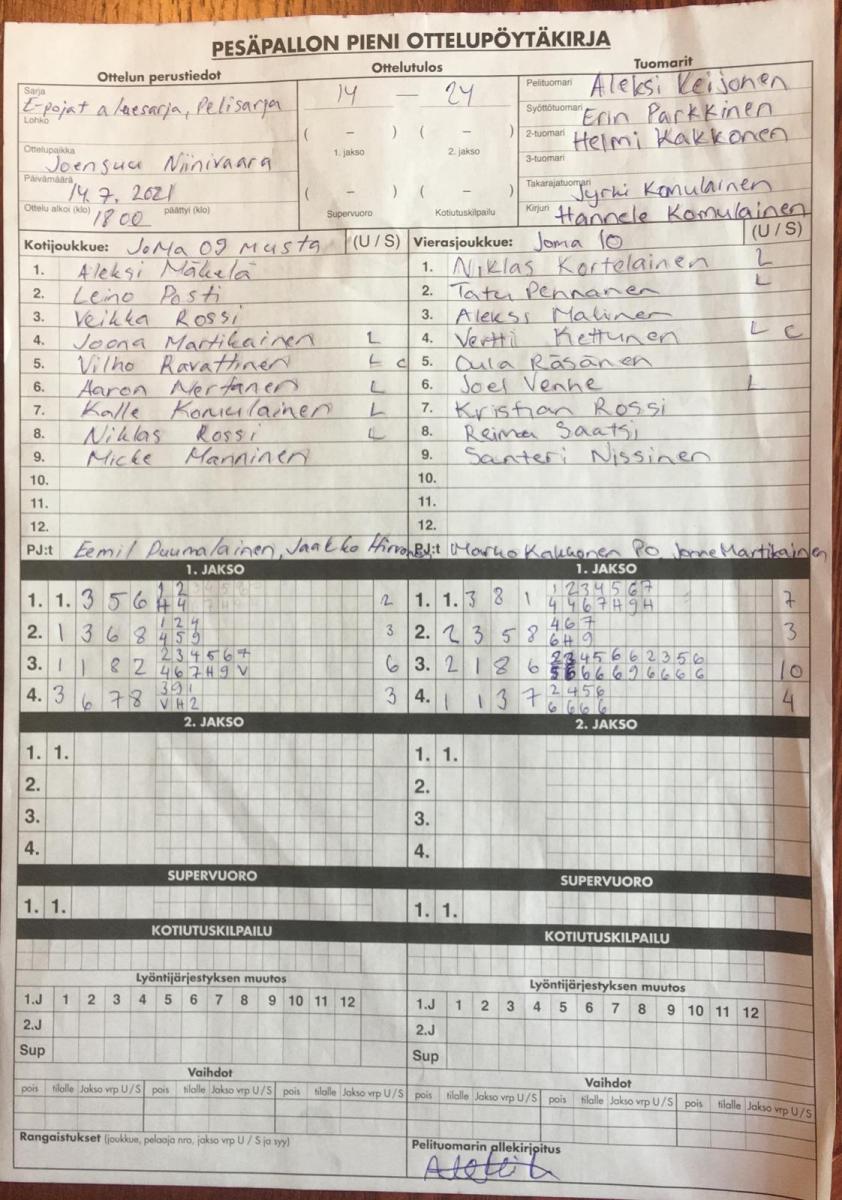 PESÄPALLON PIENI OTTELUPÖYTÄKIRJA
Ottelun perustiedot
Sarja
E-pojat aluesarja, Pelisarja
Lohko
Ottelupaikka
Joensuu Niinivaara
Päivämäärä
14.7.2021
Ottelu alkoi (klo) 1800 päättyi (klo)
Ottelutulos
14 — 24
( – ) ( – )
1. jakso 2. jakso
( – ) ( – )
Supervuoro Kotiutuskilpailu
Tuomarit
Pelituomari Aleksi Keijonen
Syöttötuomari Erin Parkkinen
2-tuomari Helmi Kakkonen
3-tuomari
Takarajatuomari Jyrki Komulainen
Kirjuri Hannele Komulainen
Kotijoukkue: JoMa 09 musta (U / S)
1. Aleksi Mäkelä
2. Leino Posti
3. Veikka Rossi
4. Joona Martikainen L
5. Vilho Ravattinen L c
6. Aaron Nertanen L
7. Kalle Komulainen L
8. Niklas Rossi L
9. Micke Manninen
10.
11.
12.
PJ:t Eemil Puumalainen, Jaakko
Vierasjoukkue: Joma 10 (U / S)
1. Niklas Kortelainen L
2. Tatu Pennanen L
3. Aleksi Malinen
4. Vertti Kettunen L c
5. Oula Räsänen
6. Joel Venhe L
7. Kristian Rossi
8. Reima Saatsi
9. Santeri Nissinen
10.
11.
12.
PJ:t Marko Kakkonen PO, Jonne Martikainen
1. JAKSO
1. 1. 3 5 6 1 2 2
H 4
2. 1 3 6 8 1 2 4 3
4 5 9
3. 1 1 8 2 2 3 4 5 6 7 6
4 6 7 H 9 V
4. 3 6 7 8 3 9 1 3
V H 2
2. JAKSO
1. 1.
2.
3.
4.
SUPERVUORO
1. 1.
KOTIUTUSKILPAILU
Lyöntijärjestyksen muutos
1.J 1 2 3 4 5 6 7 8 9 10 11 12
2.J
Sup
Vaihdot
pois tilalle Jakso vrp U / S pois tilalle Jakso vrp U / S pois tilalle Jakso vrp U / S
Rangaistukset (joukkue, pelaaja nro, jakso vrp U / S ja syy)
1. JAKSO
1. 1. 3 8 1 1 2 3 4 5 6 7 7
4 4 6 7 H 9 H
2. 2 3 5 8 4 6 7 3
6 H 9
3. 2 1 8 6 2 3 4 5 6 6 2 3 5 6 10
6 6 6 9 6 6 6 6
4. 1 1 3 7 2 4 5 6 4
6 6 6 6
2. JAKSO
1. 1.
2.
3.
4.
SUPERVUORO
1. 1.
KOTIUTUSKILPAILU
Lyöntijärjestyksen muutos
1.J 1 2 3 4 5 6 7 8 9 10 11 12
2.J
Sup
Vaihdot
pois tilalle Jakso vrp U / S pois tilalle Jakso vrp U / S pois tilalle Jakso vrp U / S
Pelituomarin allekirjoitus